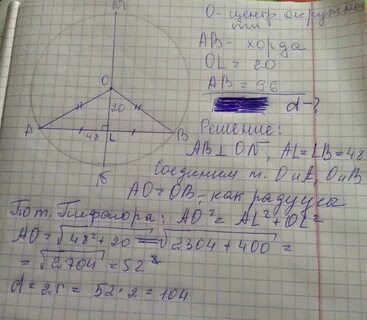 M
O - центр окружнос
ти
AB - хорда
OL = 20
AB = 96
d - ?
O
20
A
48
L
B
N
Решение:
AB ⊥ ON, AL = LB = 48
Соединим т. O и A, O и B
AO = OB - как радиусы
По т. Пифагора: AO² = AL² + OL²
AO = √48² + 20 = √2304 + 400 =
= √2704 = 52
d = 2r = 52 · 2 = 104